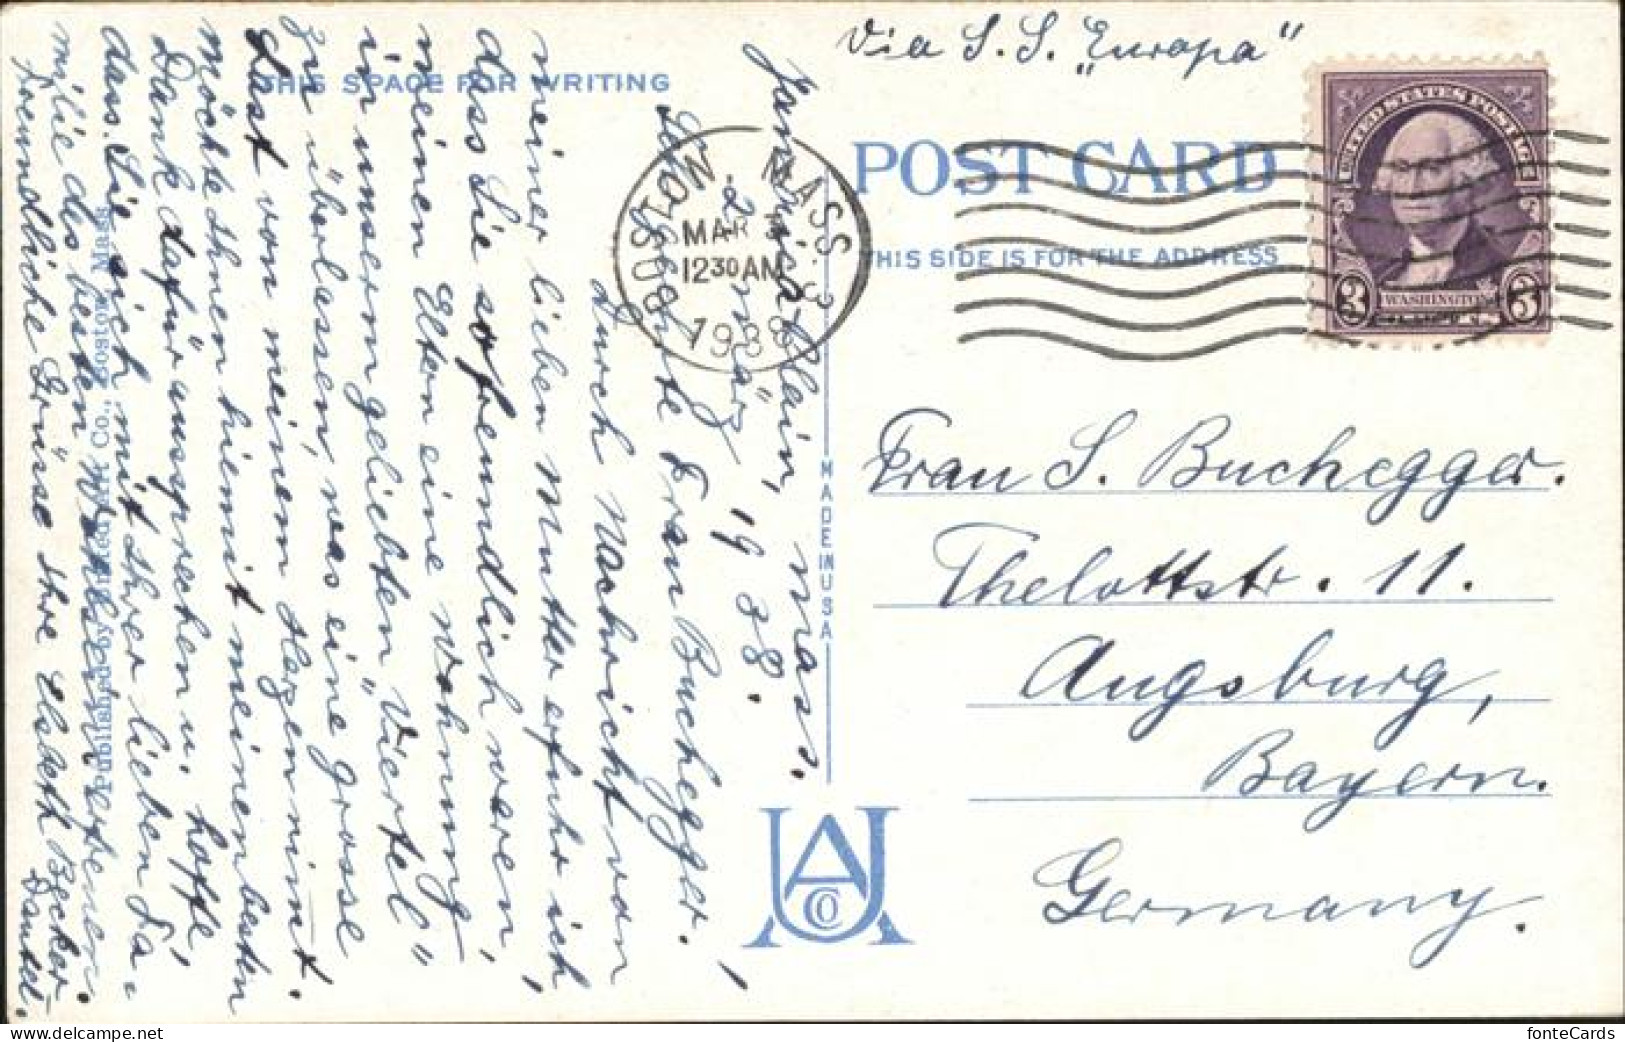 Via S. S. „Europa"
THIS SPACE FOR WRITING
POST CARD
THIS SIDE IS FOR THE ADDRESS
BOSTON MASS. 3
MAR 3
12 30 AM
1938
UNITED STATES POSTAGE
3 WASHINGTON 3
Frau S. Buchegger.
Thelottstr. 11.
Augsburg,
Bayern.
Germany.
Jamaica Plain, Mass.
2. März 1938.
Sehr geehrte Frau Buchegger!
Durch Nachricht von
meiner lieben Mutter erfuhr ich,
dass Sie so freundlich waren,
meinen Eltern eine Wohnung
in unserm geliebten „Viertel"
zu überlassen, was eine grosse
Last von meinem Herzen nimmt.
Möchte Ihnen hiemit meinen besten
Dank dafür aussprechen u. hoffe,
dass Sie sich mit Ihrer lieben Fa-
milie des besten Wohlseins erfreuen.
Freundliche Grüsse Ihre Elsbeth Becker
MADE IN U.S.A.
Published by United Art Co., Boston, Mass.
UACO
fonteCards